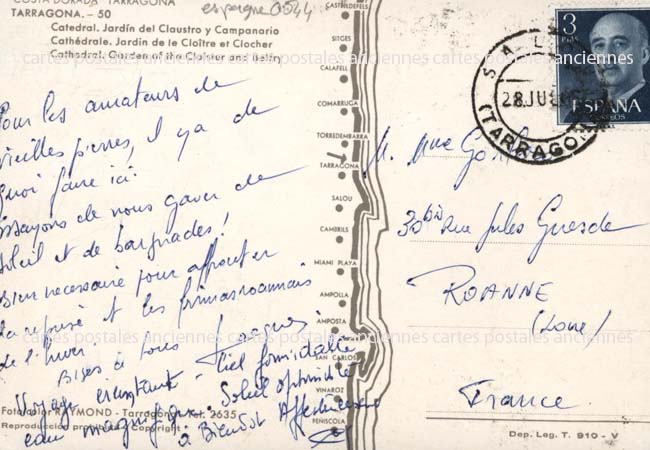 COSTA DORADA - TARRAGONA
TARRAGONA. - 50
Catedral. Jardín del Claustro y Campanario
Cathédrale. Jardin de le Cloître et Clocher
Cathedral: Garden of the Cloister and Belfry
espagne 0544
Pour les amateurs de
vieilles pierres, il y a de
quoi faire ici.
Essayons de nous gaver de
soleil et de baignades!
Bien nécessaire pour affronter
la reprise et les frimas roannais
de l'hiver
Bises à tous Jacques
Voyage éreintant - Ciel formidable
eau magnifique. Soleil optimiste
à Bientôt Affectueuse
Fotocolor RAYMOND - Tarragona - Tel. 2635
Reproducción prohibida - Copyright -
CASTELLDEFELS
SITGES
CALAFELL
COMARUGA
TORREDEMBARRA
TARRAGONA
SALOU
CAMBRILS
MIAMI PLAYA
AMPOLLA
AMPOSTA
SAN CARLOS
VINAROZ
PEÑISCOLA
3
PTAS
ESPAÑA
CORREOS
SAL
28 JUL
(TARRAGONA)
M. Mme
30 bis Rue Jules Guesde
ROANNE
(Loire)
France
Dep. Leg. T. 910 - V
cartes postales anciennes cartes postales anciennes cartes postales anciennes
cartes postales anciennes cartes postales anciennes cartes postales anciennes